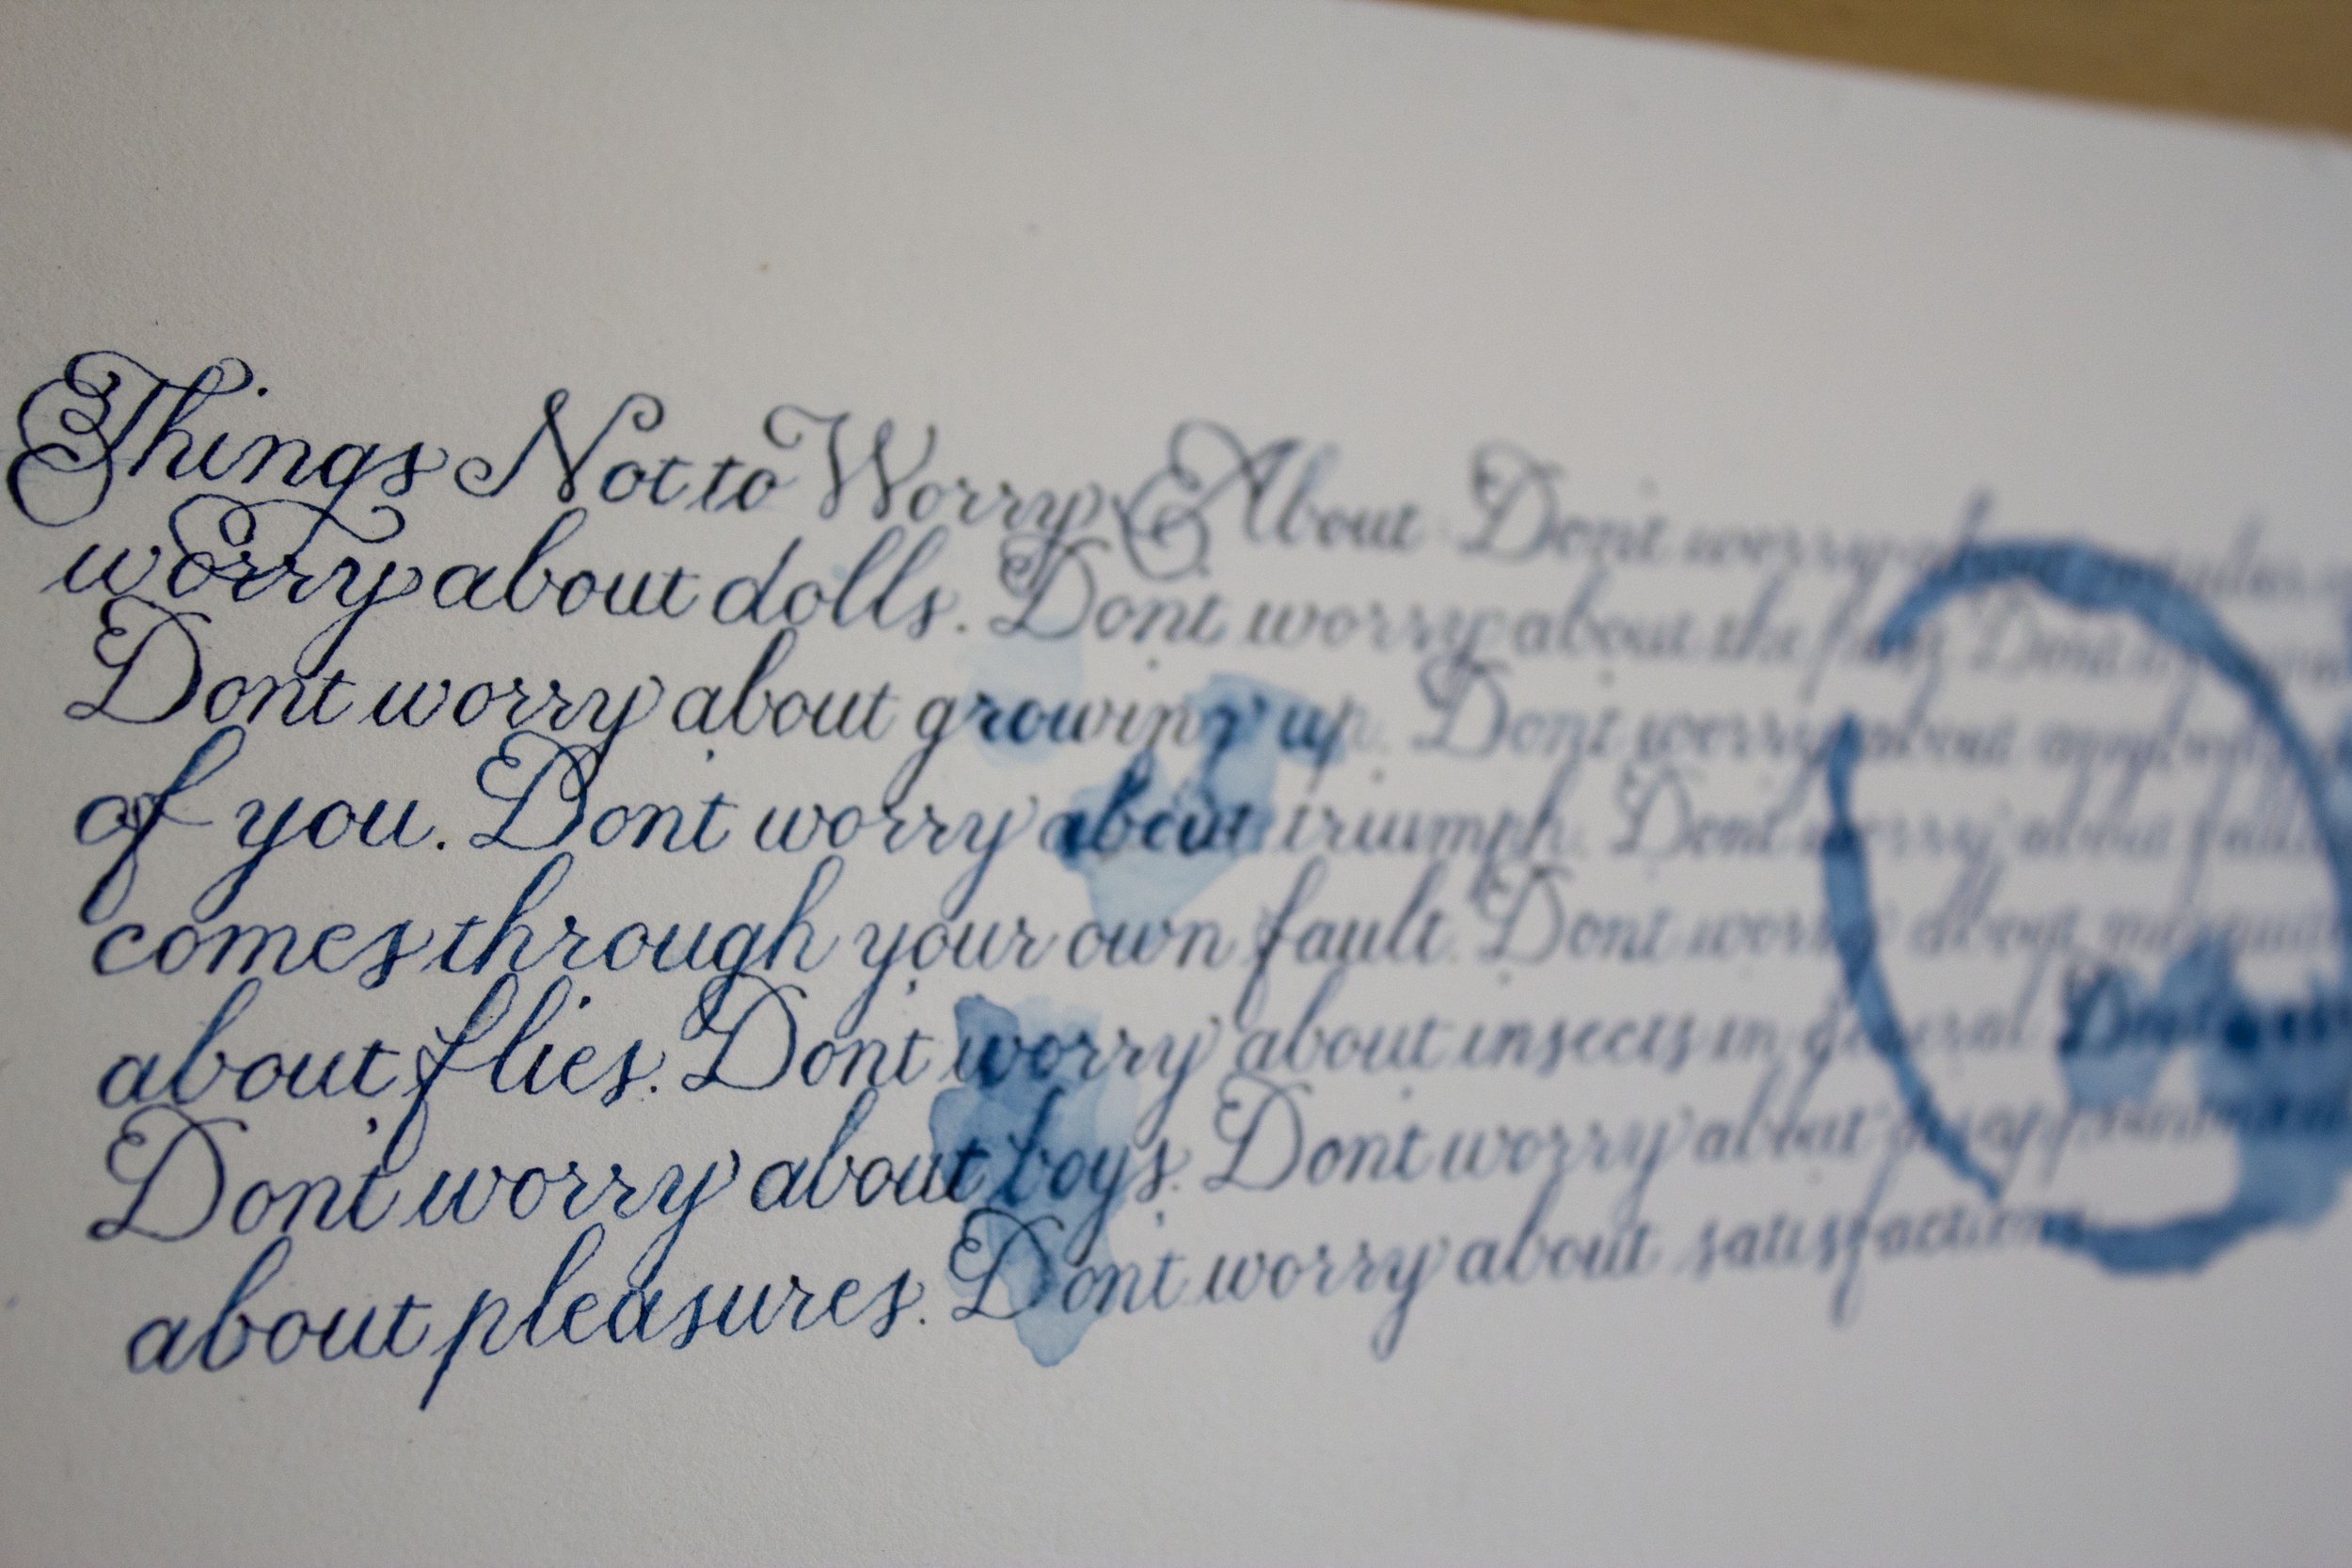 Things Not to Worry About Dont worry about popular
worry about dolls. Dont worry about the past Dont
Dont worry about growing up. Dont worry about anybody
of you. Dont worry about triumph. Dont worry about
comes through your own fault. Dont worry about
about flies. Dont worry about insects in general.
Dont worry about boys. Dont worry about disappointments
about pleasures. Dont worry about satisfactions